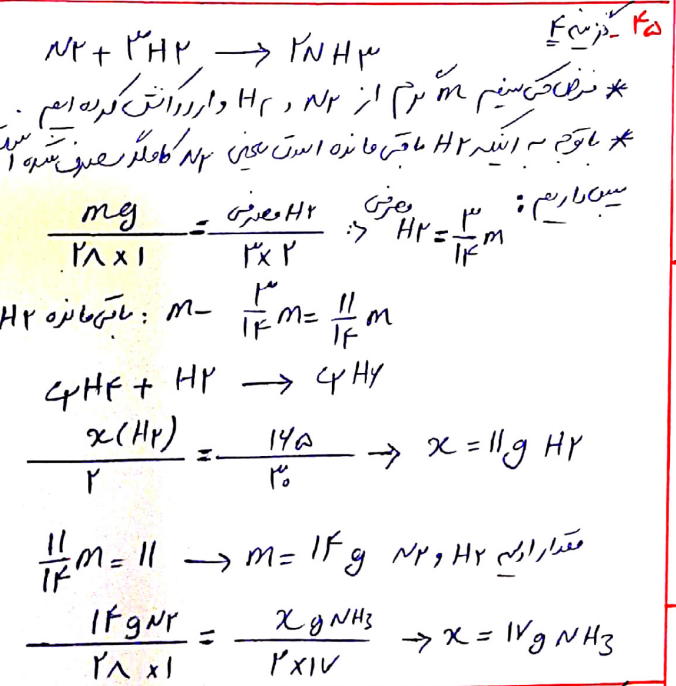 ۴۵- گزینه ۴
N۲ + ۳H۲ ⟶ ۲NH۳
* فرض می کنیم m گرم از N۲ و H۲ وارد واکنش کرده ایم.
* با توجه به اینکه H۲ باقی مانده است یعنی N۲ کاملا مصرف شده است
پس داریم:
mg / ۲۸×۱ = H۲ مصرفی / ۳×۲ :> H۲ مصرفی = ۳/۱۴ m
H۲ باقی مانده : m - ۳/۱۴ m = ۱۱/۱۴ m
C۲H۴ + H۲ ⟶ C۲H۶
x(H۲) / ۲ = ۱۶۵ / ۳۰ → x = ۱۱g H۲
۱۱/۱۴ m = ۱۱ ⟶ m = ۱۴ g N۲ و H۲ مقدار اولیه
۱۴gN۲ / ۲۸×۱ = x g NH3 / ۲×۱۷ → x = ۱۷g NH3